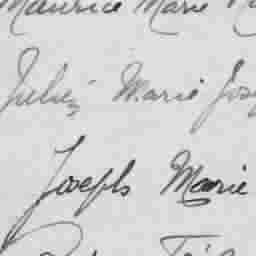 Maurice Marie
Julien Marie Jos
Joseph Marie